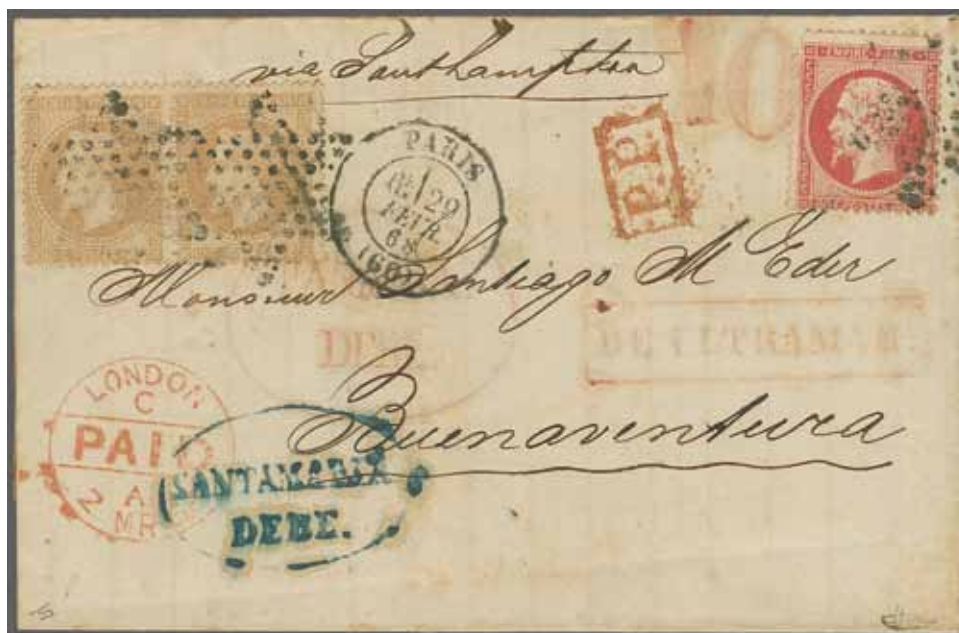 via Southampton
10
EMPIRE
PARIS
29
FEVR.
68
(60)
P.P.
Monsieur Santiago M Eder
DEBE
DE ULTRAMAR
Buenaventura
LONDON
C
PAID
A
2 MR
SANTAMARTA
DEBE.